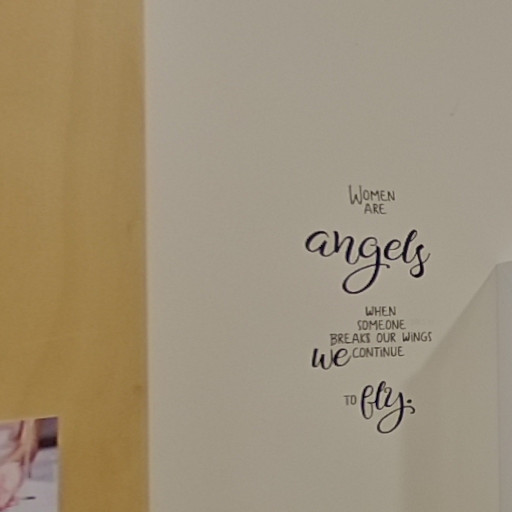 WOMEN
ARE
angels
WHEN
SOMEONE
BREAKS OUR WINGS
we CONTINUE
TO fly.